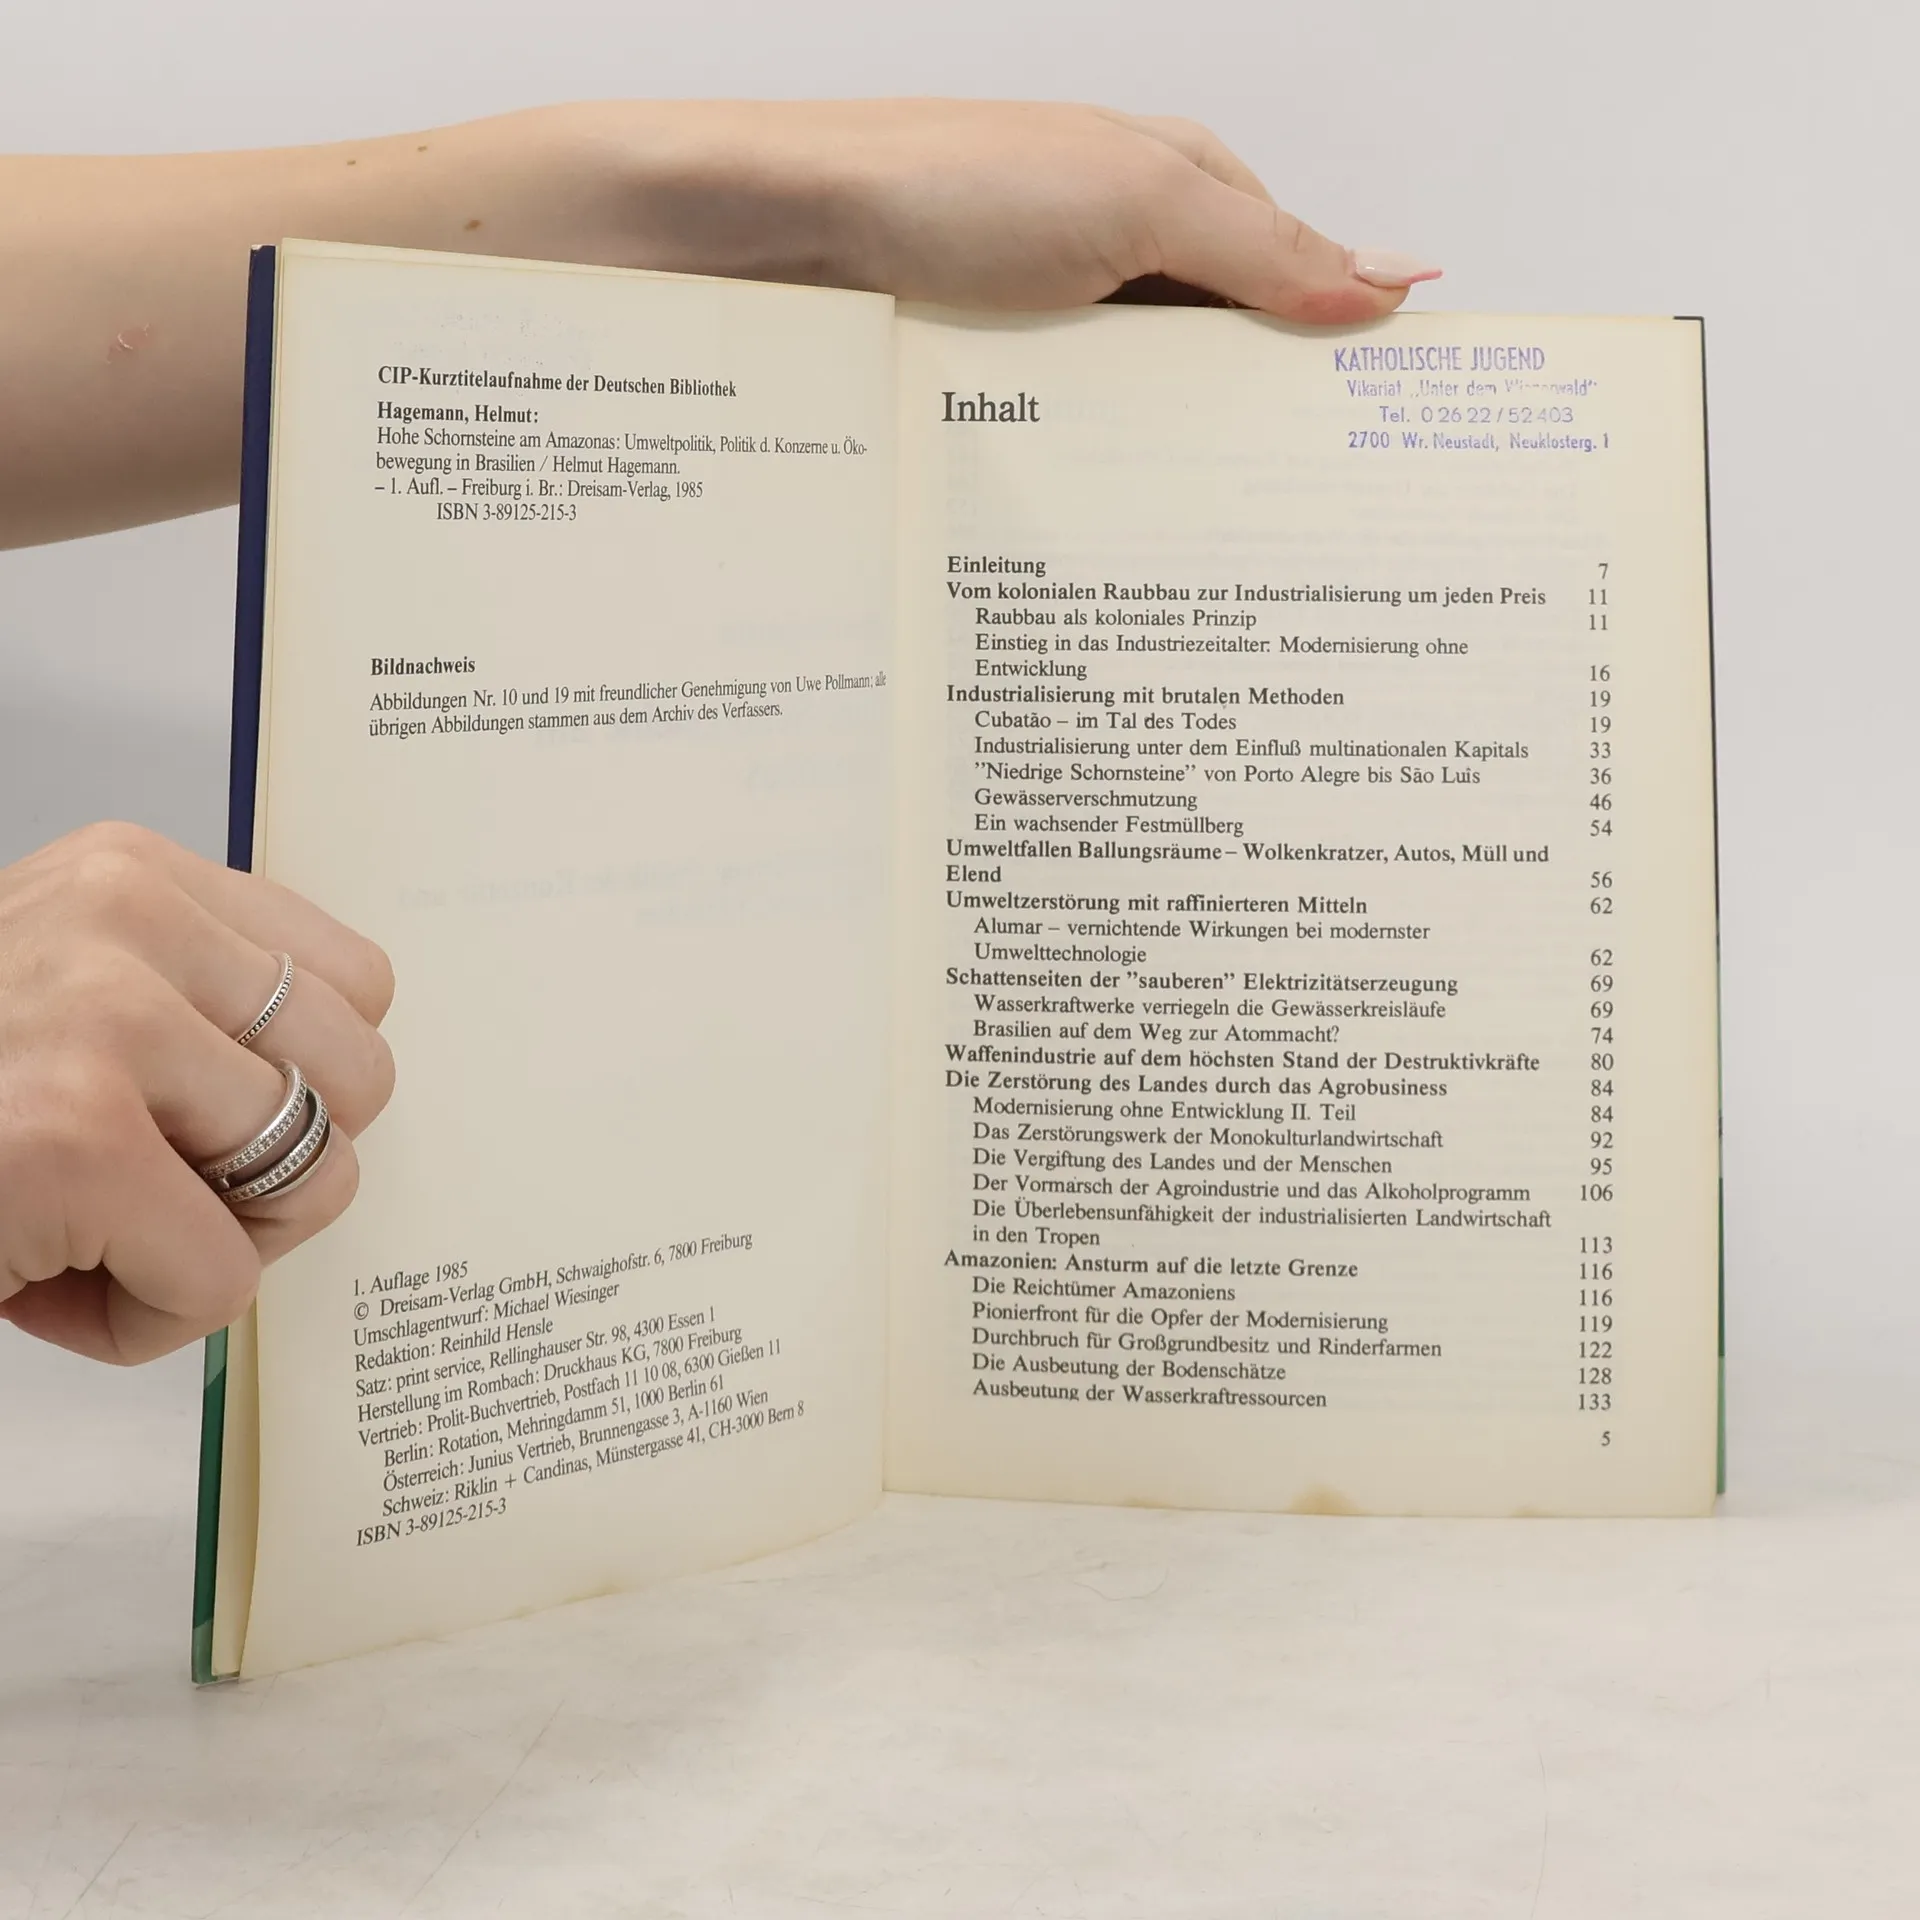 CIP-Kurztitelaufnahme der Deutschen Bibliothek
Hagemann, Helmut:
Hohe Schornsteine am Amazonas: Umweltpolitik, Politik d. Konzerne u. Öko-
bewegung in Brasilien / Helmut Hagemann.
– 1. Aufl. – Freiburg i. Br.: Dreisam-Verlag, 1985
ISBN 3-89125-215-3
Bildnachweis
Abbildungen Nr. 10 und 19 mit freundlicher Genehmigung von Uwe Pollmann; alle
übrigen Abbildungen stammen aus dem Archiv des Verfassers.
1. Auflage 1985
© Dreisam-Verlag GmbH, Schwaighofstr. 6, 7800 Freiburg
Umschlagentwurf: Michael Wiesinger
Redaktion: Reinhild Hensle
Satz: print service, Rellinghauser Str. 98, 4300 Essen 1
Herstellung im Rombach: Druckhaus KG, 7800 Freiburg
Vertrieb: Prolit-Buchvertrieb, Postfach 11 10 08, 6300 Gießen 11
Berlin: Rotation, Mehringdamm 51, 1000 Berlin 61
Österreich: Junius Vertrieb, Brunnengasse 3, A-1160 Wien
Schweiz: Riklin + Candinas, Münstergasse 41, CH-3000 Bern 8
ISBN 3-89125-215-3
KATHOLISCHE JUGEND
Vikariat „Unter dem Wienerwald"
Tel. 0 26 22 / 52 403
2700 Wr. Neustadt, Neuklosterg. 1
Inhalt
Einleitung 7
Vom kolonialen Raubbau zur Industrialisierung um jeden Preis 11
Raubbau als koloniales Prinzip 11
Einstieg in das Industriezeitalter: Modernisierung ohne
Entwicklung 16
Industrialisierung mit brutalen Methoden 19
Cubatão – im Tal des Todes 19
Industrialisierung unter dem Einfluß multinationalen Kapitals 33
”Niedrige Schornsteine” von Porto Alegre bis São Luis 36
Gewässerverschmutzung 46
Ein wachsender Festmüllberg 54
Umweltfallen Ballungsräume – Wolkenkratzer, Autos, Müll und
Elend 56
Umweltzerstörung mit raffinierteren Mitteln 62
Alumar – vernichtende Wirkungen bei modernster
Umwelttechnologie 62
Schattenseiten der ”sauberen” Elektrizitätserzeugung 69
Wasserkraftwerke verriegeln die Gewässerkreisläufe 69
Brasilien auf dem Weg zur Atommacht? 74
Waffenindustrie auf dem höchsten Stand der Destruktivkräfte 80
Die Zerstörung des Landes durch das Agrobusiness 84
Modernisierung ohne Entwicklung II. Teil 84
Das Zerstörungswerk der Monokulturlandwirtschaft 92
Die Vergiftung des Landes und der Menschen 95
Der Vormarsch der Agroindustrie und das Alkoholprogramm 106
Die Überlebensunfähigkeit der industrialisierten Landwirtschaft
in den Tropen 113
Amazonien: Ansturm auf die letzte Grenze 116
Die Reichtümer Amazoniens 116
Pionierfront für die Opfer der Modernisierung 119
Durchbruch für Großgrundbesitz und Rinderfarmen 122
Die Ausbeutung der Bodenschätze 128
Ausbeutung der Wasserkraftressourcen 133
5